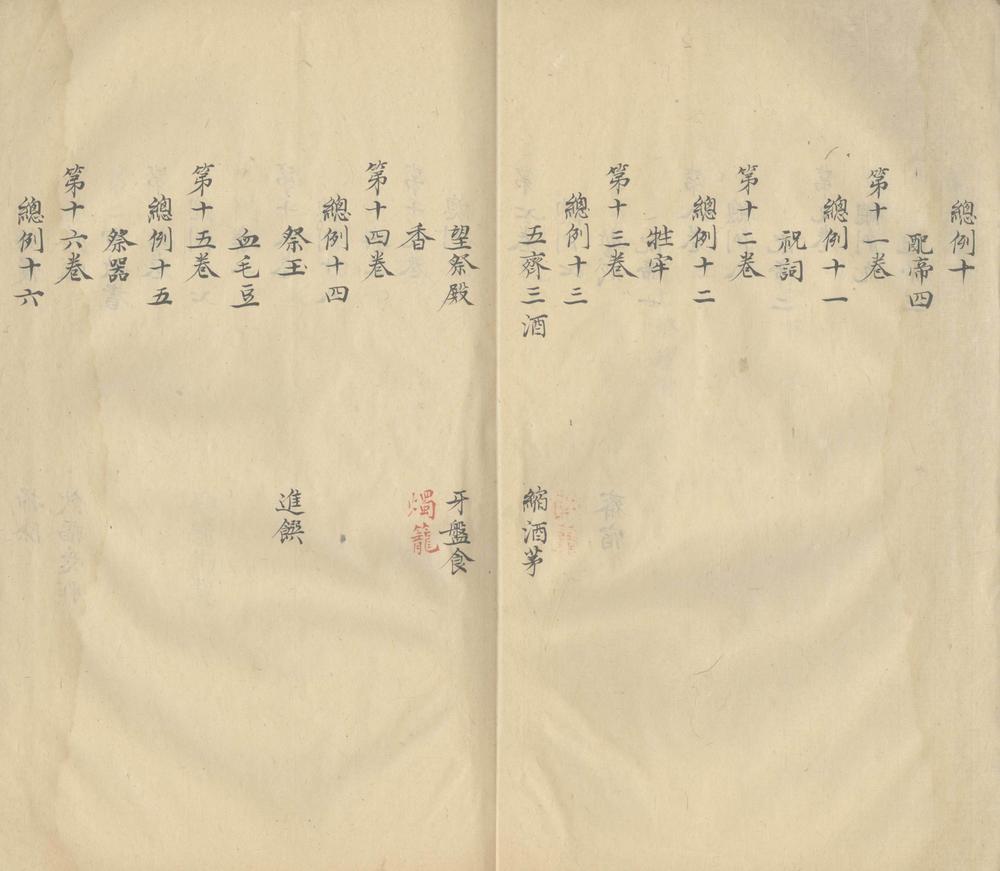 總例十
配帝四
第十一卷
總例十一
祝詞
第十二卷
總例十二
牲牢
第十三卷
總例十三
五齊三酒 縮酒茅
望祭殿 牙盤食
香 燭籠
第十四卷
總例十四
祭玉 進饌
血毛豆
第十五卷
總例十五
祭器
第十六卷
總例十六